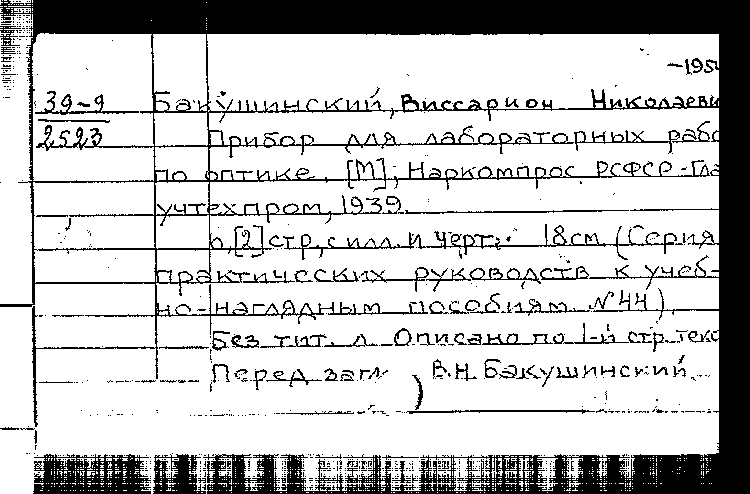 -195
39-9 Бакушинский, Виссарион Николаеви
2523 Прибор для лабораторных рабо
по оптике. [М], Наркомпрос РСФСР-Гла
учтехпром, 1939.
[2] стр, с илл. и черт. 18см (Серия
практических руководств к учеб-
но-наглядным пособиям №44).
Без тит. л. Описано по 1-й стр. текс
Перед загл В.Н. Бакушинский.